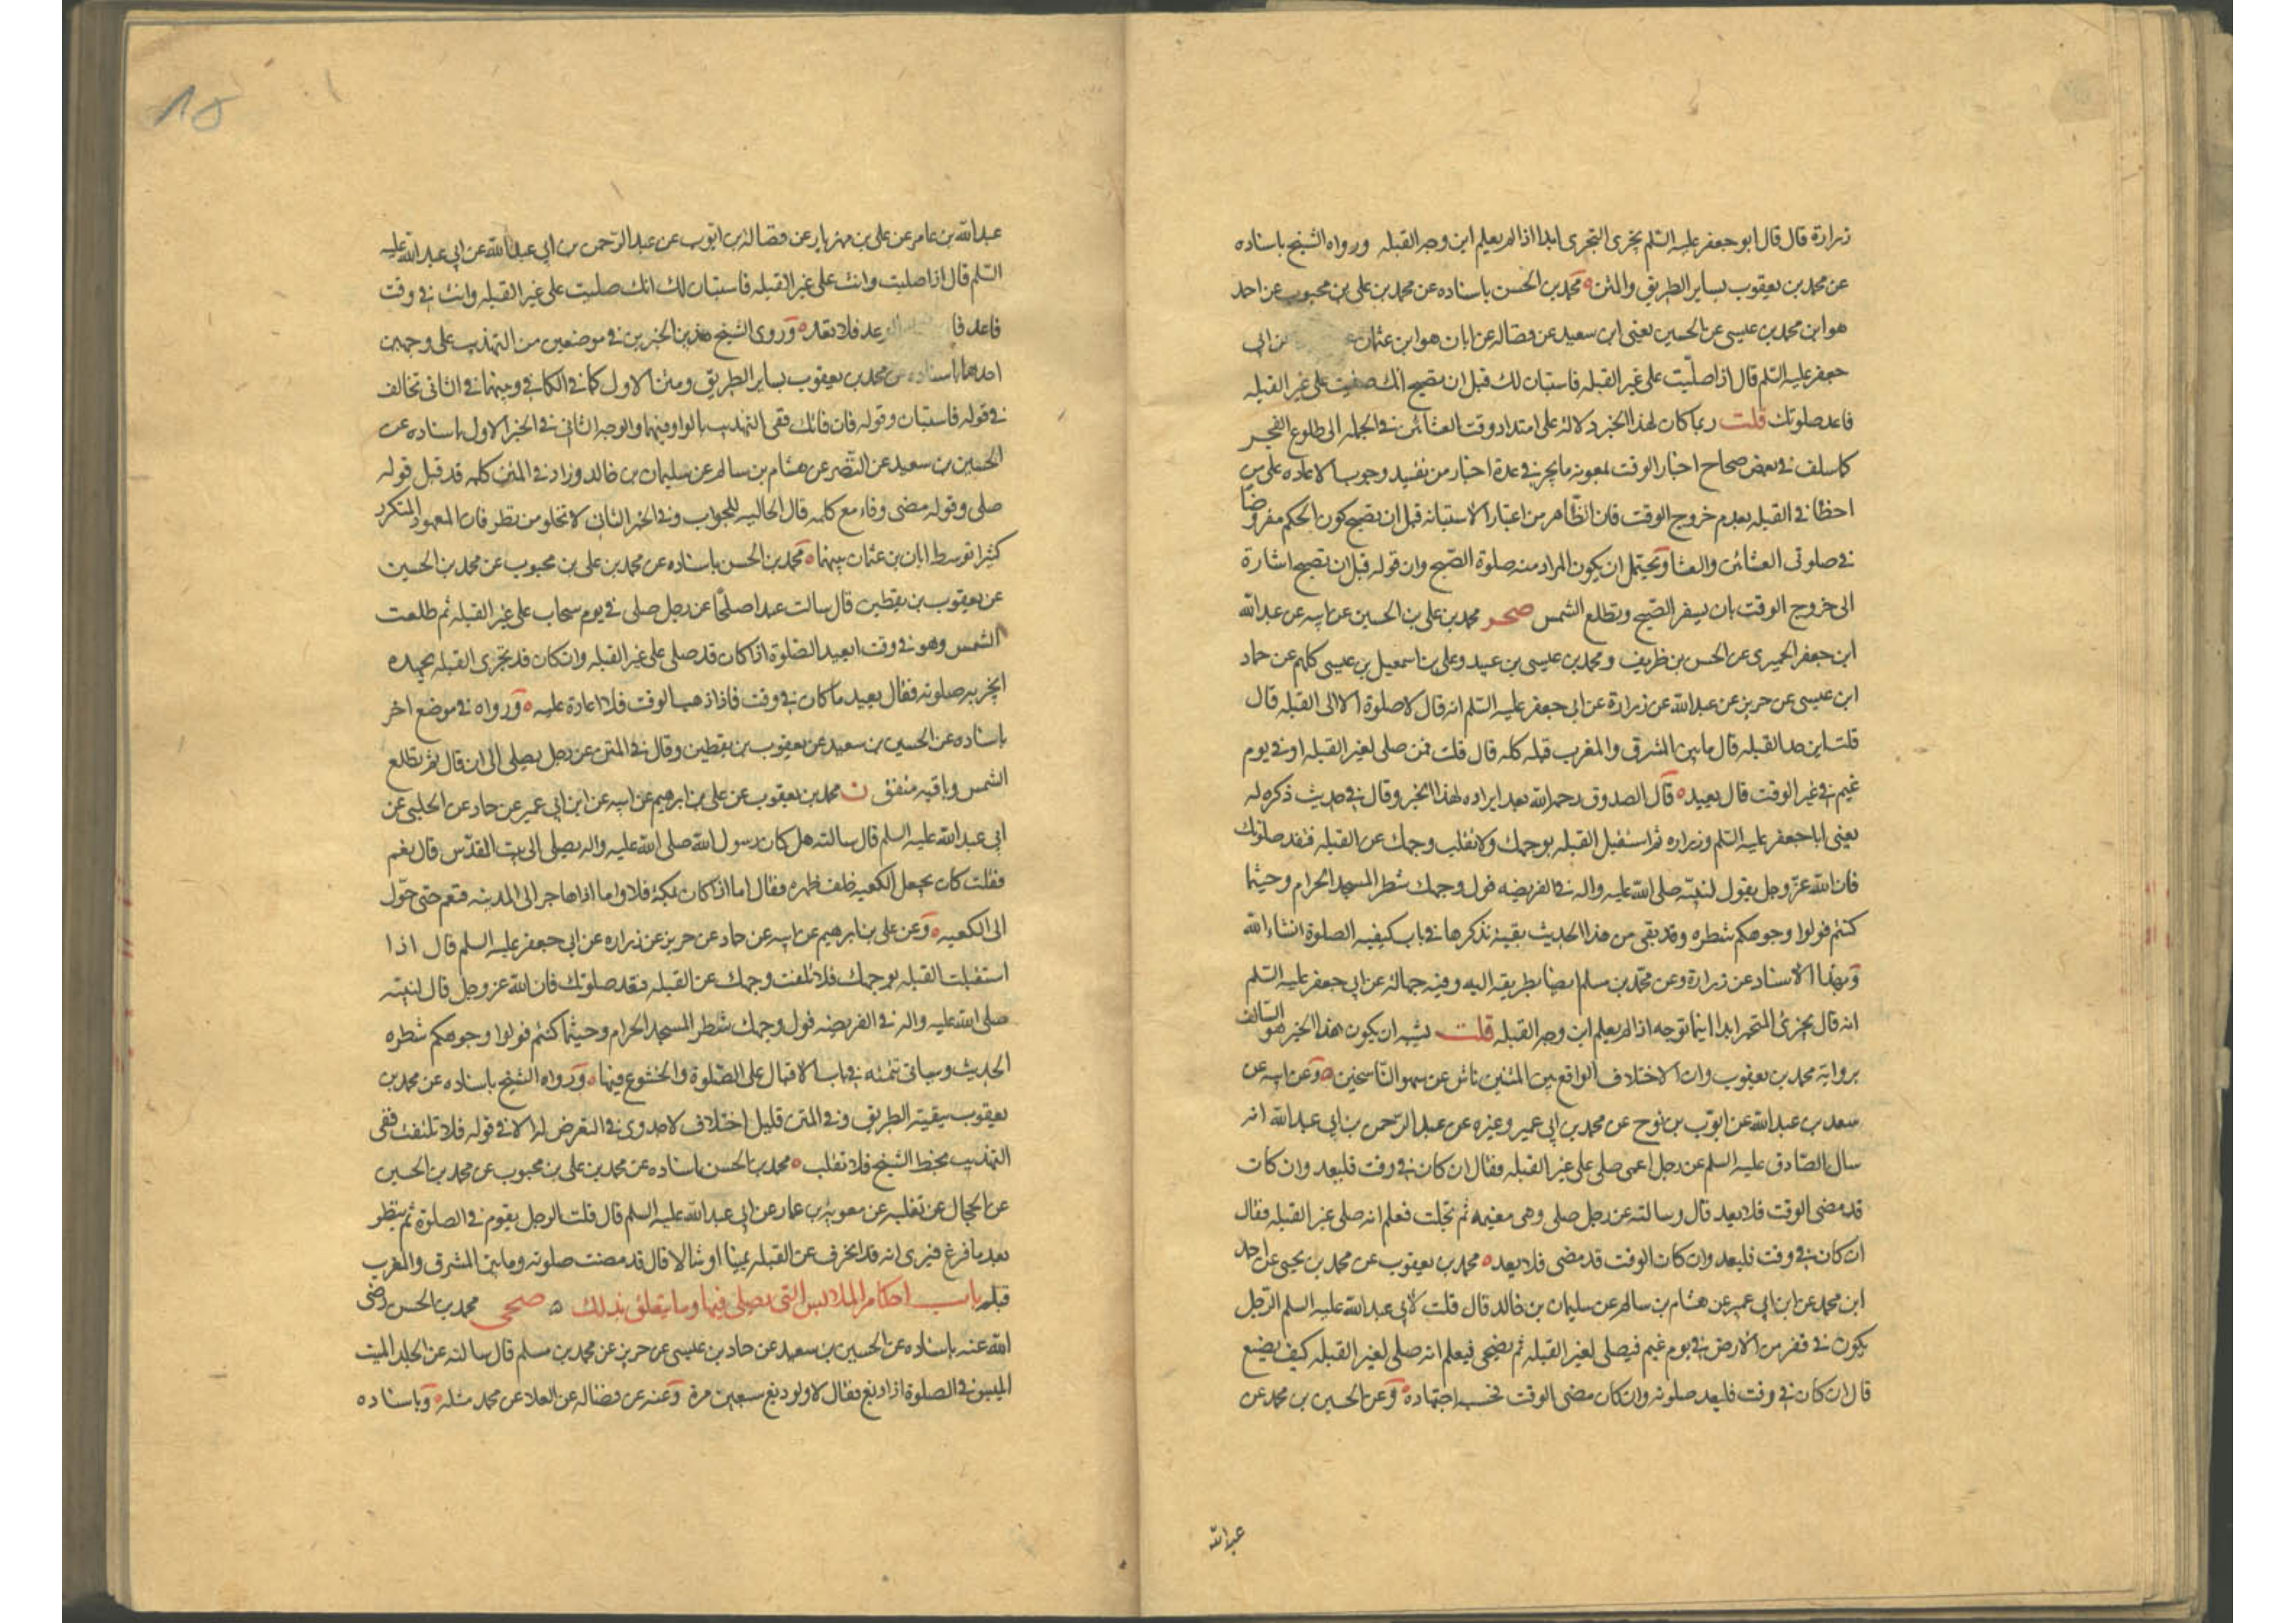 زرارة قال قال ابو جعفر عليه السلم يجزى التحرى ابدا اذا لم يعلم اين وجه القبله ورواه الشيخ باسناده
عن محمد بن يعقوب بساير الطريق والمتن محمد بن الحسن باسناده عن محمد بن على بن محبوب عن احمد
هو ابن محمد بن عيسى عن الحسين يعنى ابن سعيد عن فضاله عن ابان هو ابن عثمان عن ابى
جعفر عليه السلم قال اذا صليت على غير القبله فاستبان لك قبل ان تصبح انك صليت على غير القبله
فاعد صلوتك قلت ربما كان لهذا الخبر دلالة على امتداد وقت العشائين فى الجمله الى طلوع الفجر
كما سلف فى بعض صحاح اخبار الوقت بمعونه ما يجئ فى عدة اخبار من تقييد وجوب الاعاده على من
اخطأ فى القبله بعدم خروج الوقت فان الظاهر من اعتبار الاستبانه قبل ان تصبح كون الحكم مفروضا
فى صلوتى العشائين والعشا ويحتمل ان يكون المراد منه صلوة الصبح وان قوله قبل ان تصبح اشارة
الى خروج الوقت بان يسفر الصبح وتطلع الشمس صحر محمد بن على بن الحسين عن ابيه عن عبد الله
ابن جعفر الحميرى عن الحسن بن ظريف ومحمد بن عيسى بن عبيد وعلى بن اسمعيل بن عيسى كلهم عن حماد
ابن عيسى عن حريز عن عبد الله عن زرارة عن ابى جعفر عليه السلم انه قال لا صلوة الا الى القبله قال
قلت اين حد القبله قال ما بين المشرق والمغرب قبله كله قال قلت فمن صلى لغير القبله او فى يوم
غيم فى غير الوقت قال يعيد قال الصدوق رحمه الله بعد ايراده لهذا الخبر وقال فى حديث ذكره له
يعنى ابا جعفر عليه السلم وزراره ثم استقبل القبله بوجهك ولا تقلب وجهك عن القبله فتفسد صلوتك
فان الله عز وجل يقول لنبيه صلى الله عليه واله فى الفريضه فول وجهك شطر المسجد الحرام وحيثما
كنتم فولوا وجوهكم شطره وقد بقى من هذا الحديث بقية نذكرها فى باب كيفيه الصلوة انشاء الله
وبهذا الاسناد عن زرارة وعن محمد بن مسلم ايضا بطريقه اليه وفيه جهالة عن ابى جعفر عليه السلم
انه قال يجزئ المتحير ابدا اينما توجه اذا لم يعلم اين وجه القبله قلت يشبه ان يكون هذا الخبر هو السالف
برواية محمد بن يعقوب وان الاختلاف الواقع بين المتنين ناش عن سهو الناسخين وعن ابيه عن
سعد بن عبد الله عن ايوب بن نوح عن محمد بن ابى عمير وغيره عن عبد الرحمن بن ابى عبد الله انه
سال الصادق عليه السلم عن رجل اعمى صلى على غير القبله فقال ان كان فى وقت فليعد وان كان
قد مضى الوقت فلا يعيد قال وسالته عن رجل صلى وهى مغيمه ثم تجلت فعلم انه صلى على غير القبله فقال
ان كان فى وقت فليعد وان كان الوقت قد مضى فلا يعيد محمد بن يعقوب عن محمد بن يحيى عن احمد
ابن محمد عن ابن ابى عمير عن هشام بن سالم عن سليمان بن خالد قال قلت لابى عبد الله عليه السلم الرجل
يكون فى قفر من الارض فى يوم غيم فيصلى لغير القبله ثم يضحى فيعلم انه صلى لغير القبله كيف يصنع
قال ان كان فى وقت فليعد صلوته وان كان مضى الوقت فحسبه اجتهاده وعن الحسين بن محمد عن
عبد الله
عبد الله بن عامر عن على بن مهزيار عن فضالة بن ايوب عن عبد الرحمن بن ابى عبد الله عن ابى عبد الله عليه
السلم قال اذا صليت وانت على غير القبله فاستبان لك انك صليت على غير القبله وانت فى وقت
فاعد فا فلا تعد وروى الشيخ هذين الخبرين فى موضعين من التهذيب على وجهين
احدهما باسناده عن محمد بن يعقوب بساير الطريق ومتن الاول كما فى الكافى وبينهما فى الثانى تخالف
فى قوله فاستبان وقوله فان فاتك ففى التهذيب بالواو فيهما والوجه الثانى فى الخبر الاول باسناده عن
الحسين بن سعيد عن النضر عن هشام بن سالم عن سليمان بن خالد وزاد فى المتن كلمه قد قبل قوله
صلى وقوله مضى وفاء مع كلمه قال الحاليه للجواب وفى الخبر الثانى لا تخلو من نظر فان المعهود المتكرر
كثيرا توسط ابان بن عثمان بينهما محمد بن الحسن باسناده عن محمد بن على بن محبوب عن محمد بن الحسين
عن يعقوب بن يقطين قال سالت عبدا صالحا عن رجل صلى فى يوم سحاب على غير القبله ثم طلعت
الشمس وهو فى وقت ايعيد الصلوة اذا كان قد صلى على غير القبله وان كان قد تحرى القبله بجهده
اتجزيه صلوته فقال يعيد ما كان فى وقت فاذا ذهب الوقت فلا اعادة عليه ورواه فى موضع اخر
باسناده عن الحسين بن سعيد عن يعقوب بن يقطين وقال فى المتن عن رجل يصلى الى ان قال ثم تطلع
الشمس وباقيه متفق ن محمد بن يعقوب عن على بن ابرهيم عن ابيه عن ابن ابى عمير عن حماد عن الحلبى عن
ابى عبد الله عليه السلم قال سالته هل كان رسول الله صلى الله عليه واله يصلى الى بيت المقدس قال نعم
فقلت كان يجعل الكعبه خلف ظهره فقال اما اذا كان بمكة فلا واما اذا هاجر الى المدينه فنعم حتى حول
الى الكعبه وعن على بن ابرهيم عن ابيه عن حماد عن حريز عن زراره عن ابى جعفر عليه السلم قال اذا
استقبلت القبله بوجهك فلا تلفت وجهك عن القبله فتفسد صلوتك فان الله عز وجل قال لنبيه
صلى الله عليه واله فى الفريضه فول وجهك شطر المسجد الحرام وحيثما كنتم فولوا وجوهكم شطره
الحديث وسياتى تتمته فى باب الاقبال على الصلوة والخشوع فيها ورواه الشيخ باسناده عن محمد بن
يعقوب ببقية الطريق وفى المتن قليل اختلاف لا جدوى فى التعرض له الا فى قوله فلا تلفت ففى
التهذيب بخط الشيخ فلا تقلب محمد بن الحسن باسناده عن محمد بن على بن محبوب عن محمد بن الحسين
عن الحجال عن ثعلبه عن معوية بن عمار عن ابى عبد الله عليه السلم قال قلت الرجل يقوم فى الصلوة ثم ينظر
بعد ما فرغ فيرى انه قد انحرف عن القبله يمينا او شمالا قال قد مضت صلوته وما بين المشرق والمغرب
قبله باب احكام الملابس التى يصلى فيها وما يتعلق بذلك صحى محمد بن الحسن رضى
الله عنه باسناده عن الحسين بن سعيد عن حماد بن عيسى عن حريز عن محمد بن مسلم قال سالته عن الجلد الميت
ايلبس فى الصلوة اذا دبغ فقال لا ولو دبغ سبعين مرة وعنه عن فضاله عن العلا عن محمد مثله وباسناده